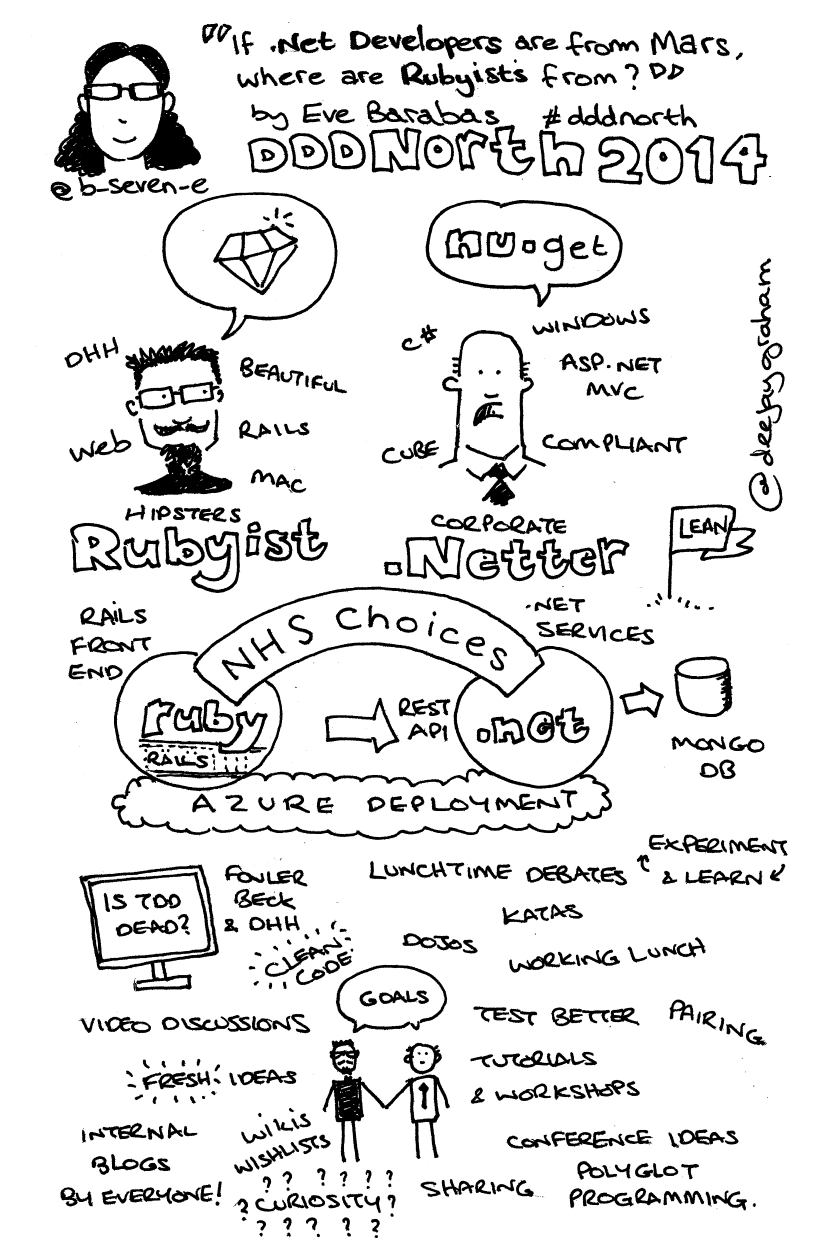 "If .Net Developers are from Mars,
where are Rubyists from?"
by Eve Barabas #dddnorth
DDDNorth 2014
@b-seven-e
nu.get
@deejaygraham
DHH
BEAUTIFUL
Web
RAILS
MAC
HIPSTERS
Rubyist
C#
WINDOWS
ASP.NET
MVC
CUBE
COMPLIANT
CORPORATE
.Netter
LEAN
RAILS
FRONT
END
NHS Choices
.NET
SERVICES
ruby
RAILS
REST
API
.net
MONGO
DB
AZURE DEPLOYMENT
IS TDD
DEAD?
FOWLER
BECK
& DHH
CLEAN
CODE
LUNCHTIME DEBATES
EXPERIMENT
& LEARN
KATAS
DOJOS
WORKING LUNCH
VIDEO DISCUSSIONS
GOALS
TEST BETTER
PAIRING
FRESH IDEAS
TUTORIALS
& WORKSHOPS
INTERNAL
BLOGS
BY EVERYONE!
Wikis
WISHLISTS
? ? ? ? ? ?
? CURIOSITY ?
? ? ? ? ?
SHARING
CONFERENCE IDEAS
POLYGLOT
PROGRAMMING.